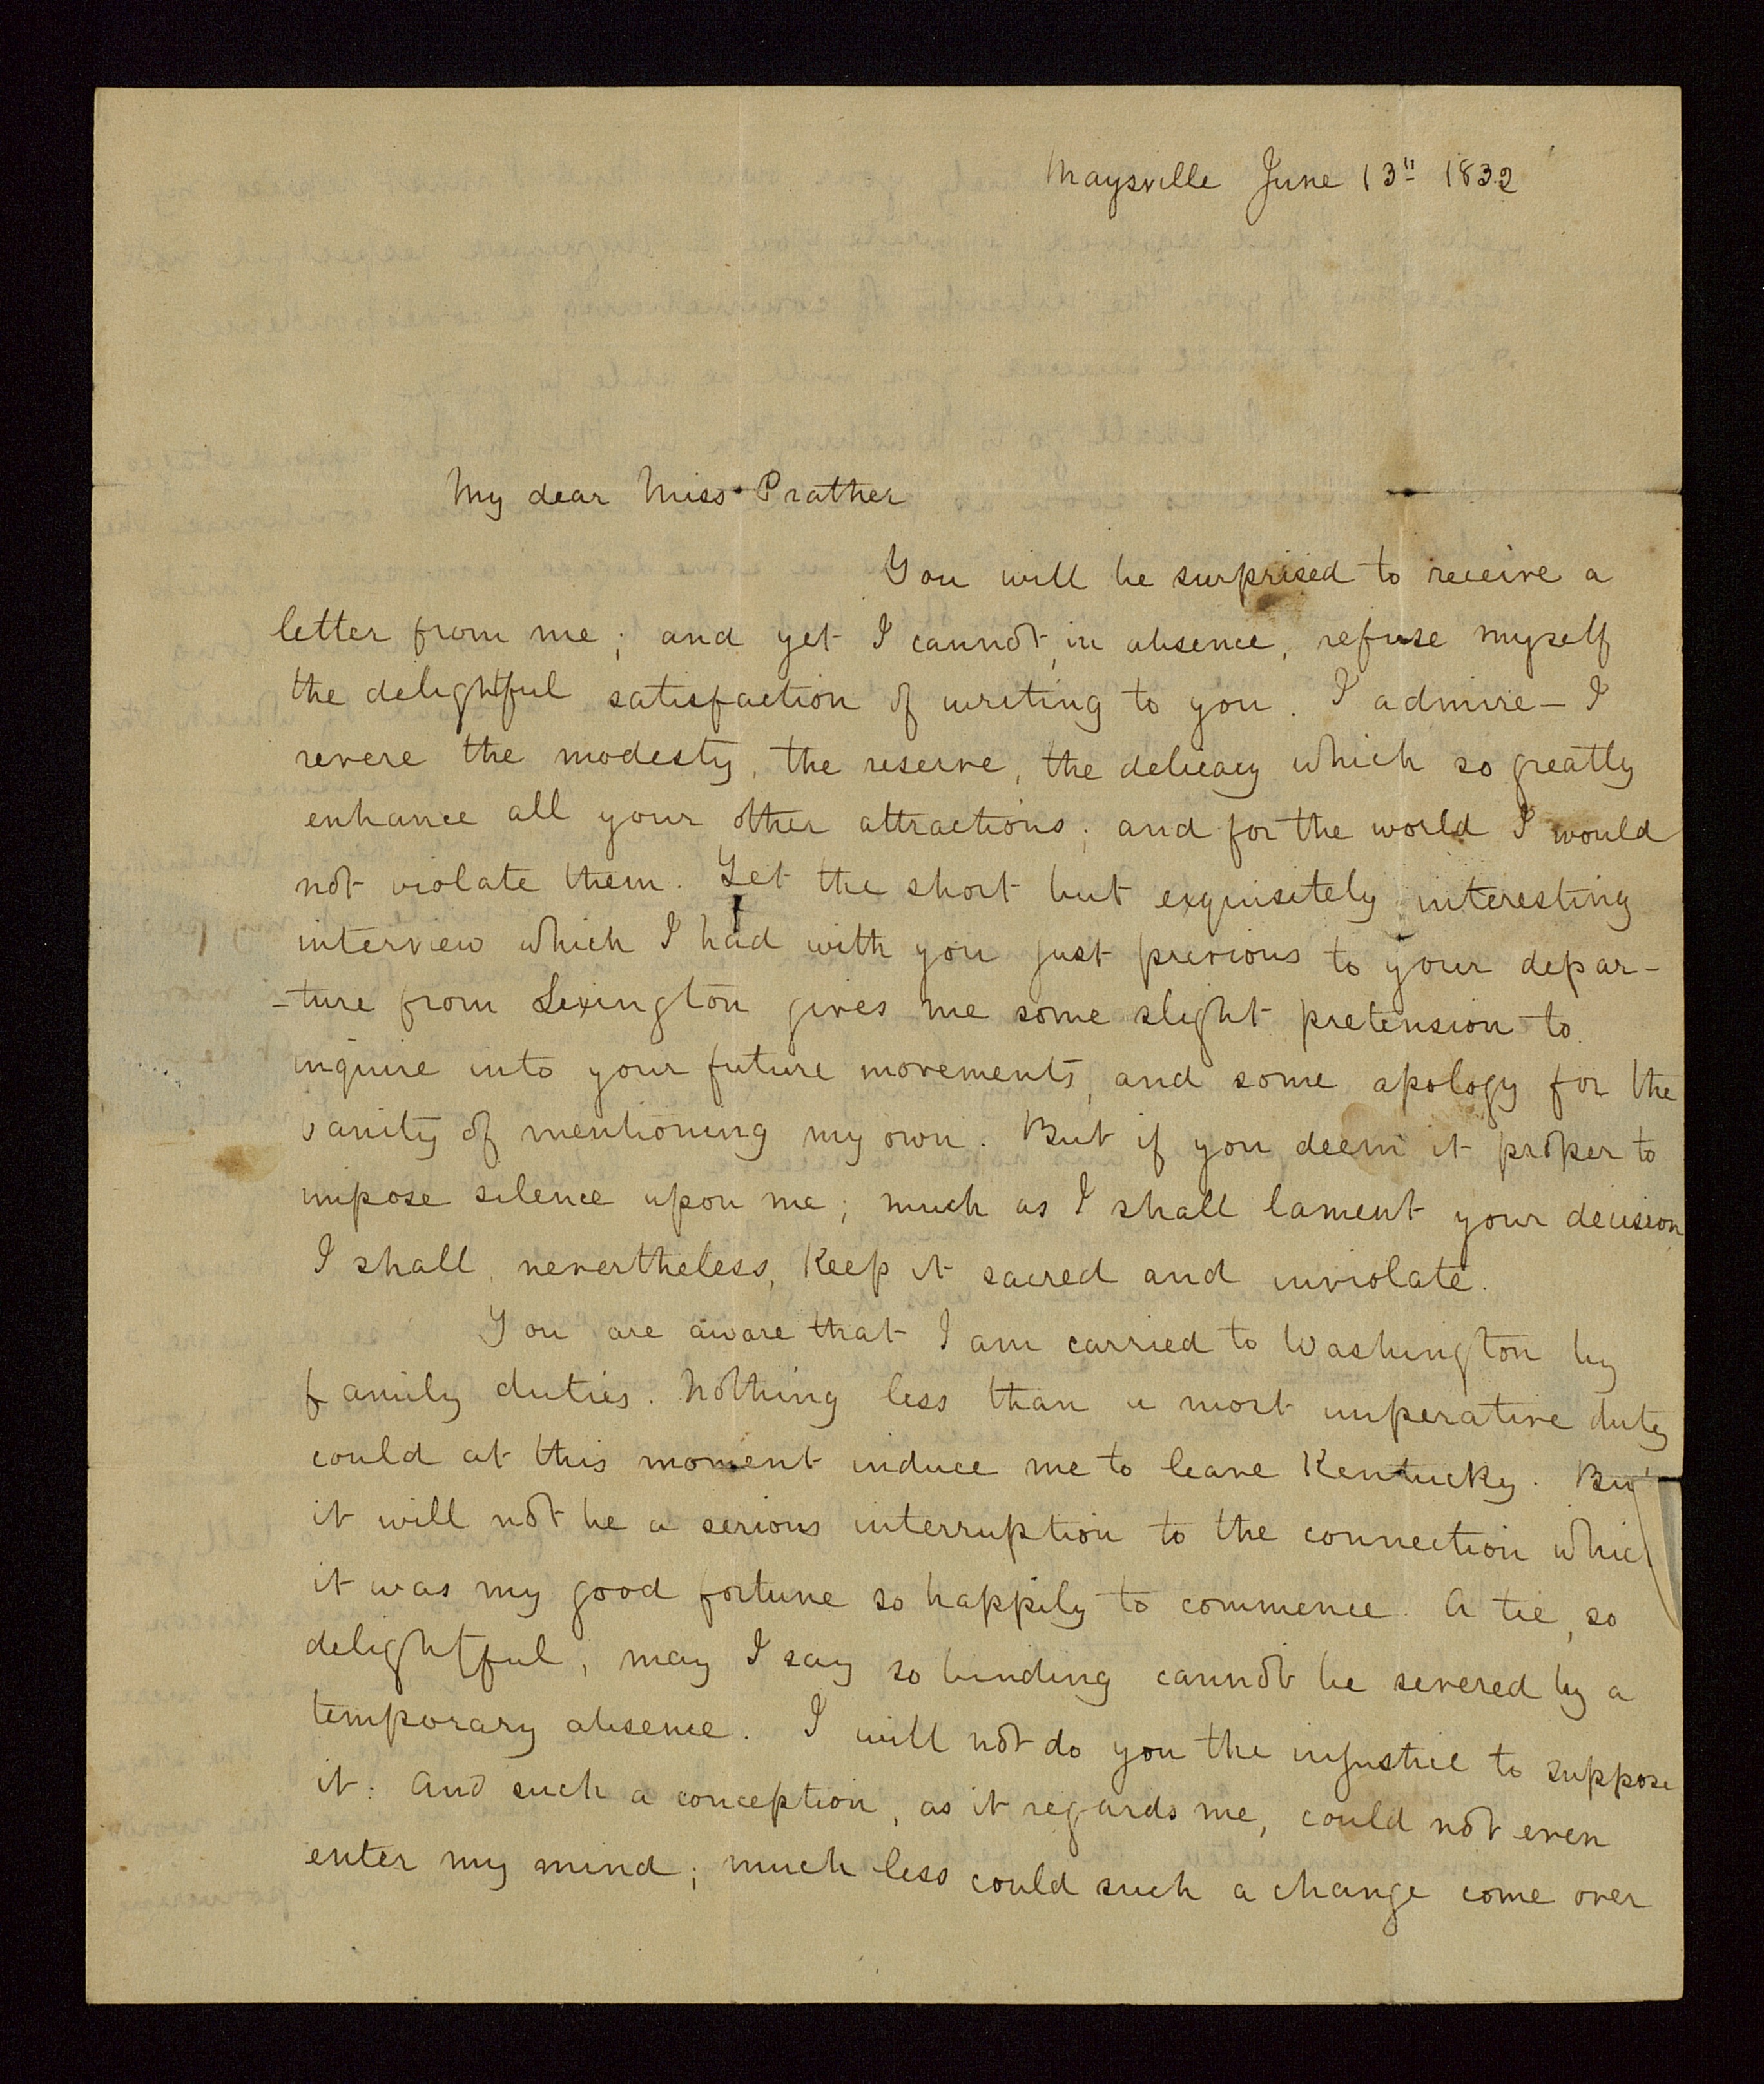 Maysville June 13" 1832
My dear Miss Prather
You will be surprised to receive a
letter from me; and yet I cannot, in absence, refuse myself
the delightful satisfaction of writing to you. I admire — I
revere the modesty, the reserve, the delicacy which so greatly
enhance all your other attractions; and for the world I would
not violate them. Yet the short but exquisitely interesting
interview which I had with you just previous to your depar-
-ture from Lexington gives me some slight pretension to
inquire into your future movements, and some apology for the
vanity of mentioning my own. But if you deem it proper to
impose silence upon me; much as I shall lament your decision
I shall, nevertheless, keep it sacred and inviolate.
You are aware that I am carried to Washington by
family duties. Nothing less than a most imperative duty
could at this moment induce me to leave Kentucky. But
it will not be a serious interruption to the connection which
it was my good fortune so happily to commence. A tie, so
delightful, may I say so binding cannot be severed by a
temporary absence. I will not do you the injustice to suppose
it. And such a conception, as it regards me, could not even
enter my mind; much less could such a change come over